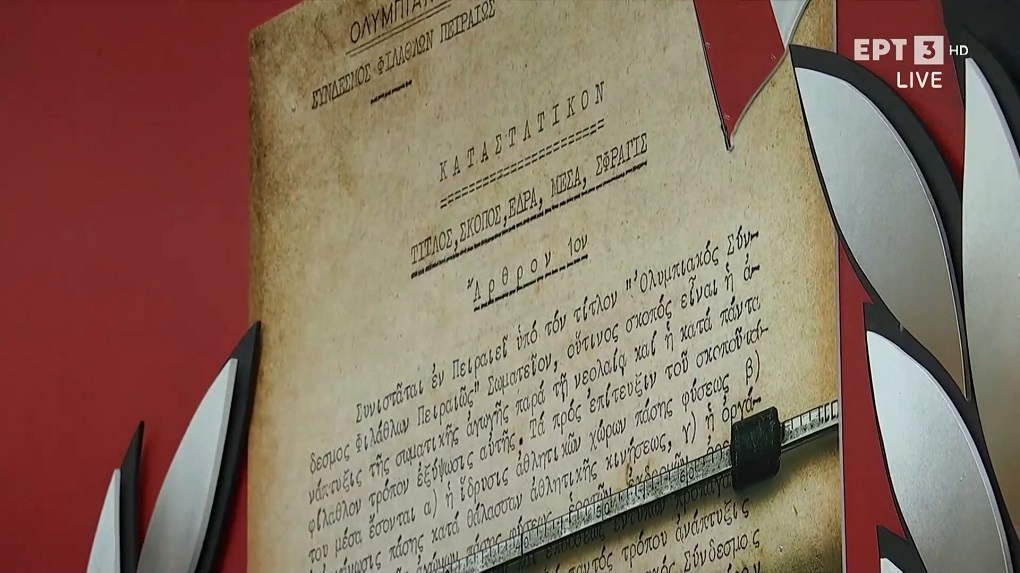 ΕΡΤ 3 HD
LIVE
ΣΥΝΔΕΣΜΟΣ ΦΙΛΑΘΛΩΝ ΠΕΙΡΑΙΩΣ
ΚΑΤΑΣΤΑΤΙΚΟΝ
ΤΙΤΛΟΣ, ΣΚΟΠΟΣ, ΕΔΡΑ, ΜΕΣΑ, ΣΦΡΑΓΙΣ
Ἄρθρον 1ον
Συνιστᾶται ἐν Πειραιεῖ ὑπό τόν τίτλον "Ὀλυμπιακός Σύν-
δεσμος Φιλάθλων Πειραιῶς" Σωματεῖον, οὕτινος σκοπός εἶναι ἡ ἀ-
νάπτυξις τῆς σωματικῆς ἀγωγῆς παρά τῇ νεολαίᾳ καί ἡ κατά πάντα
φίλαθλον τρόπον ἐξύψωσις αὐτῆς. Τά πρός ἐπίτευξιν τοῦ σκοποῦ
του μέσα ἔσονται α) ἡ ἵδρυσις ἀθλητικῶν χώρων πάσης φύσεως β)
πάσης κατά θάλασσαν ἀθλητικῆς κινήσεως, γ) ἡ ὀργά-
παντός τρόπου ἀνάπτυξις
Σύνδεσμος